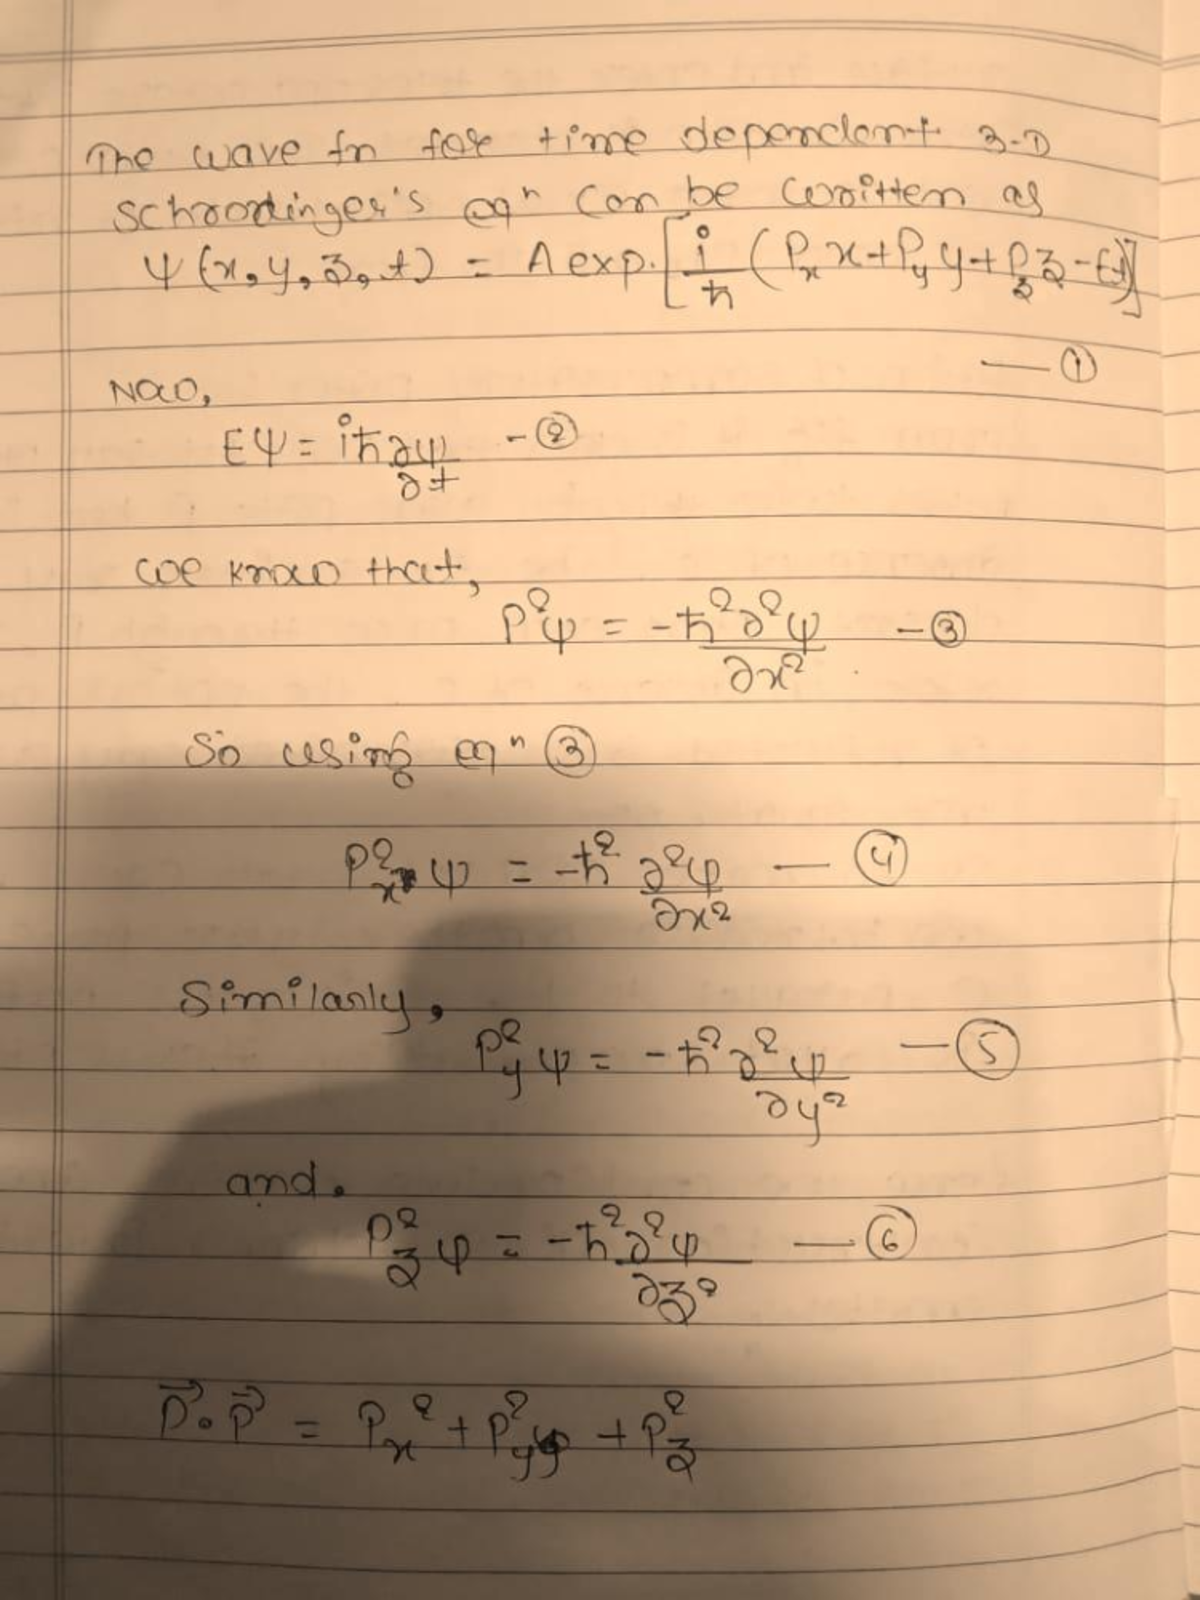 The wave fn for time dependent 3-D
Schrodinger's eqⁿ can be written as
ψ(x, y, z, t) = A exp. [i/ħ (Pₓx + P_y y + P_z z - Et)]
— ①
Now,
Eψ = iħ ∂ψ/∂t - ②
we know that,
P²ψ = -ħ² ∂²ψ/∂x² - ③
So using eqⁿ ③
Pₓ² ψ = -ħ² ∂²ψ/∂x² — ④
Similarly,
P_y² ψ = -ħ² ∂²ψ/∂y² — ⑤
and.
P_z² ψ = -ħ² ∂²ψ/∂z² — ⑥
P⃗ . P⃗ = Pₓ² + P_y² + P_z²